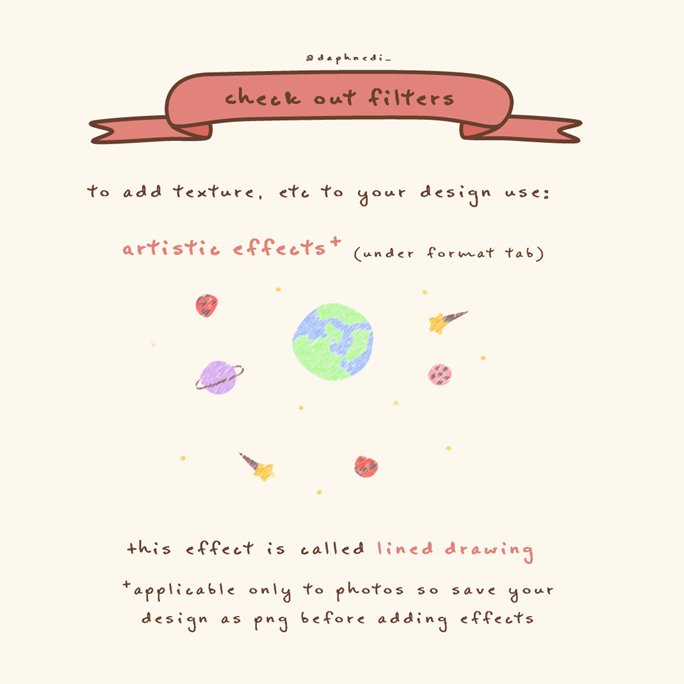 @daphnedi_
check out filters
to add texture, etc to your design use:
artistic effects⁺ (under format tab)
this effect is called lined drawing
⁺applicable only to photos so save your
design as png before adding effects